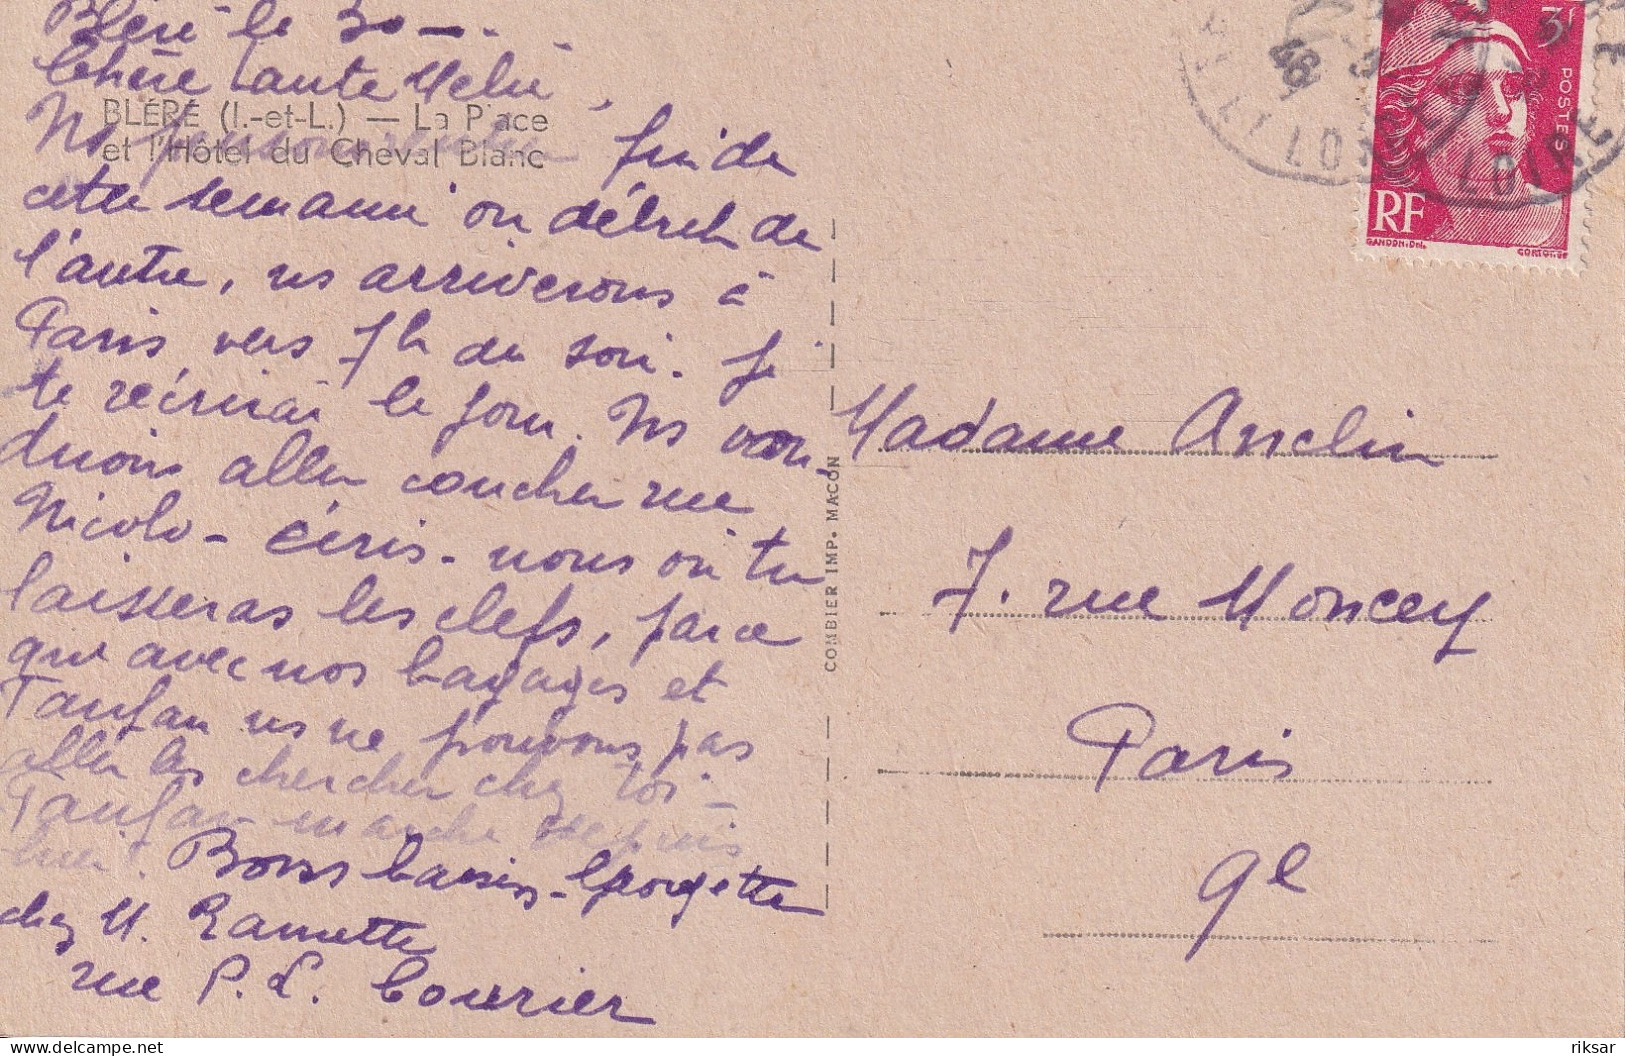 Bléré le 30 —
Chère Tante Mélie,
BLÉRÉ (I.-et-L.) — La Place
et l'Hôtel du Cheval Blanc
Ns pensons fin de
cette semaine ou début de
l'autre, ns arriverons à
Paris vers 7h du soir. Je
te récrirai le jour. Ns vou-
drions aller coucher rue
Nicolo - écris-nous où tu
laisseras les clefs, parce
que avec nos bagages et
Fanfan ns ne pouvons pas
aller les chercher chez toi -
Fanfan marche depuis
hier. Bons baisers - Georgette
chez M. Ramette
rue P. L. Courier
COMBIER IMP. MACON
3F
POSTES
RF
GANDON.Del.
CORTOT.Sc
48
Madame Anclin
7. rue Moncey
Paris
9e
riksar